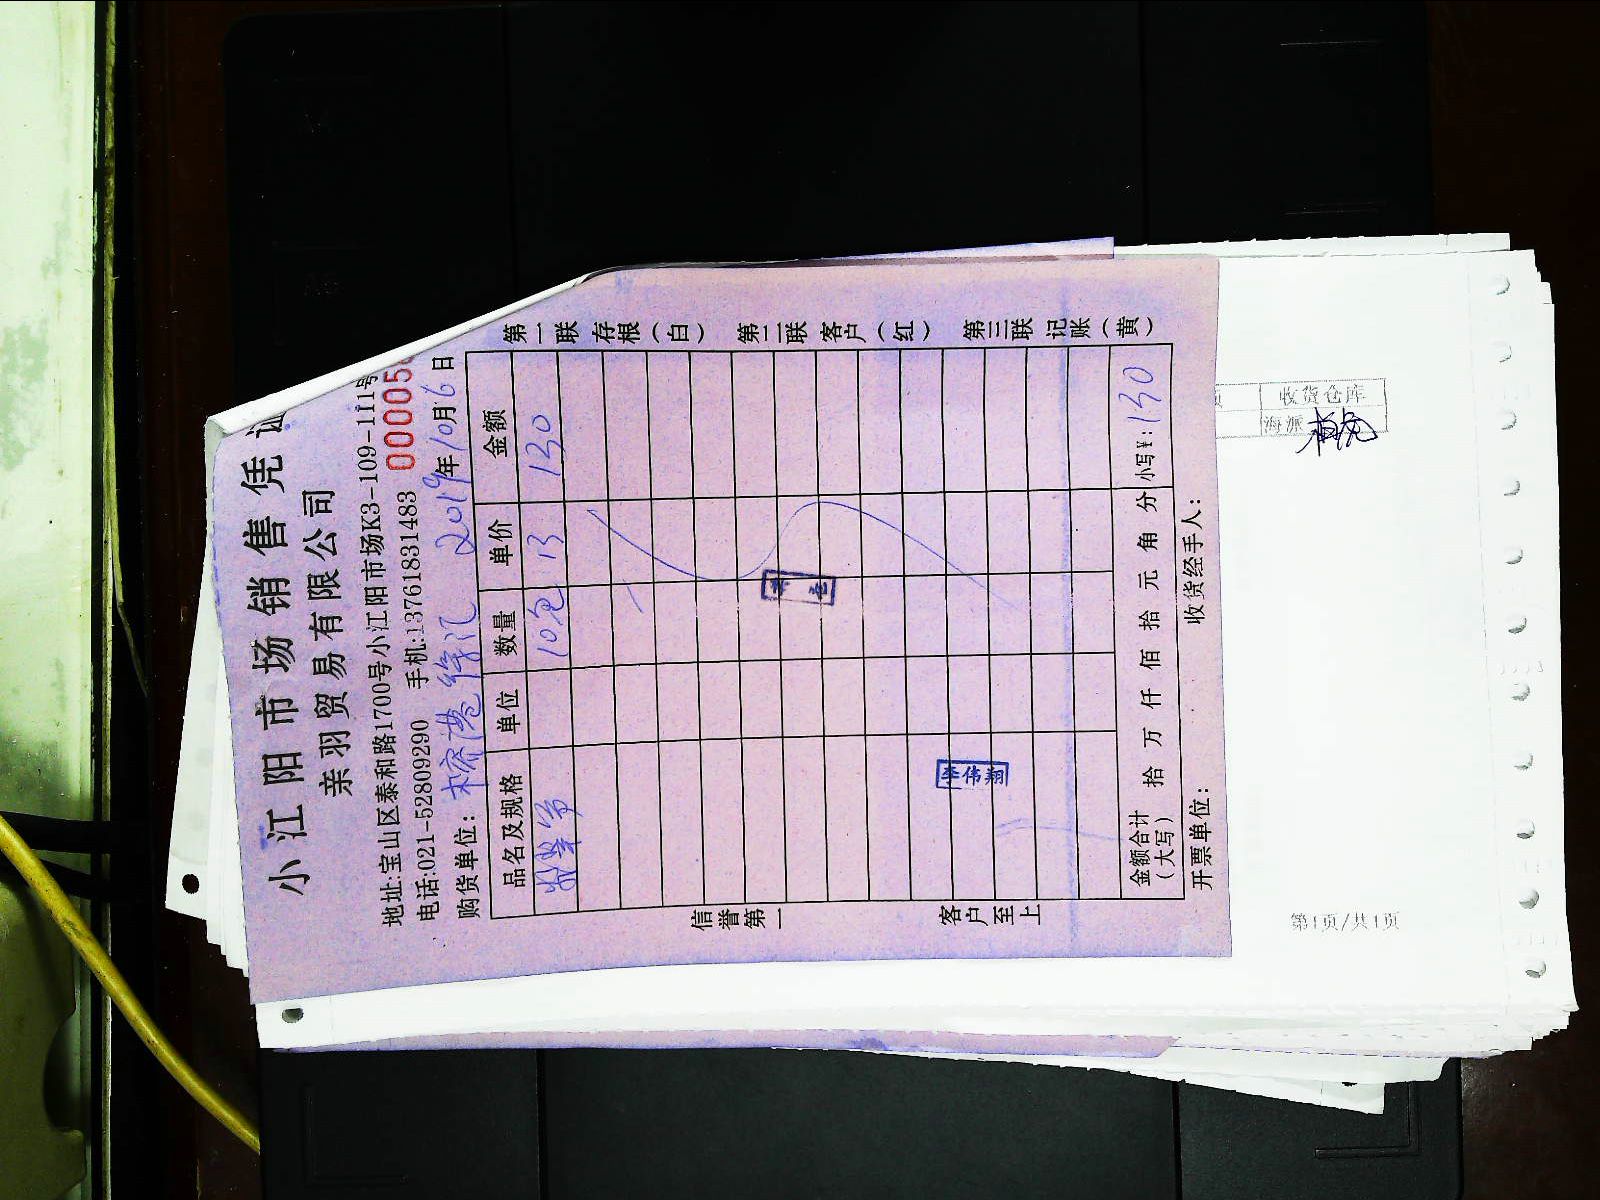 小江阳市场销售凭证
亲羽贸易有限公司
地址:宝山区泰和路1700号小江阳市场K3-109-111号
电话:021-52809290 手机:13761831483 00005
购货单位: 榕港徐汇 2019年10月6日
品名及规格 单位 数量 单价 金额
10包 13 130
李伟翔
金额合计(大写) 拾 万 仟 佰 拾 元 角 分 小写¥:130
开票单位: 收货经手人:
信誉第一 客户至上
第一联 存根(白) 第二联 客户(红) 第三联 记账(黄)
收货仓库
海派
第1页/共1页